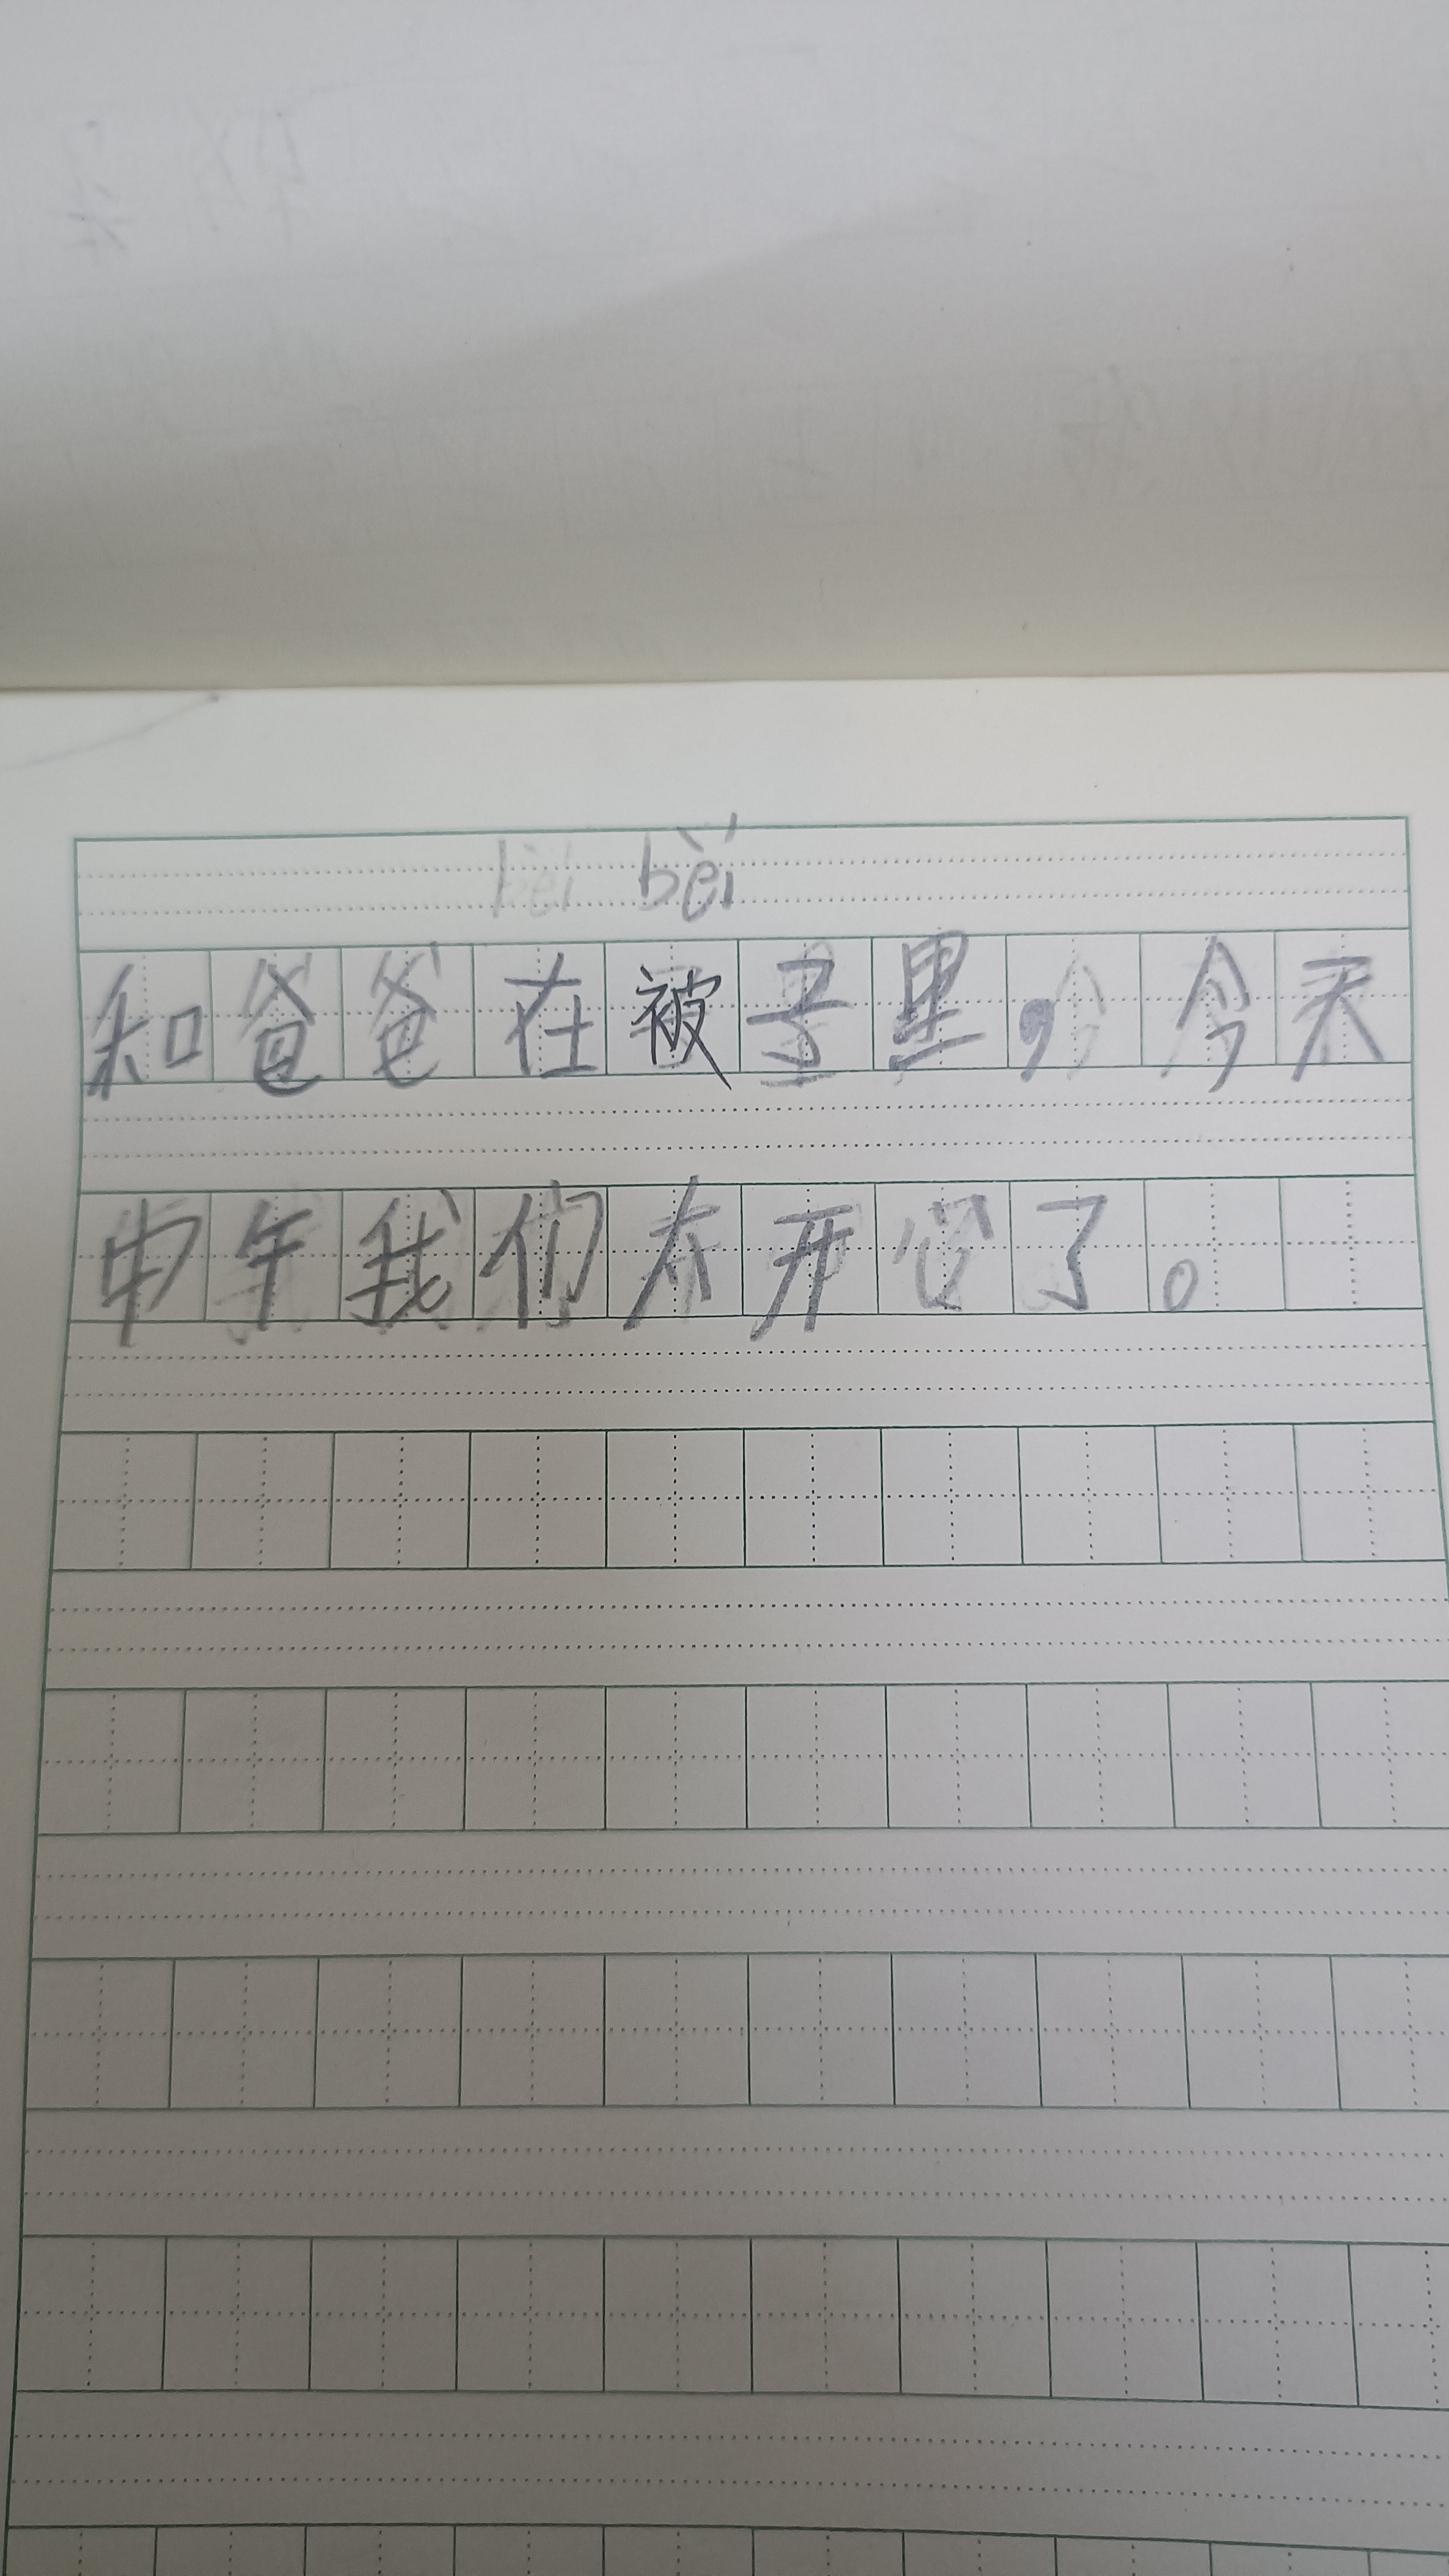 bèi
和爸爸在被子里，今天
中午我们太开心了。